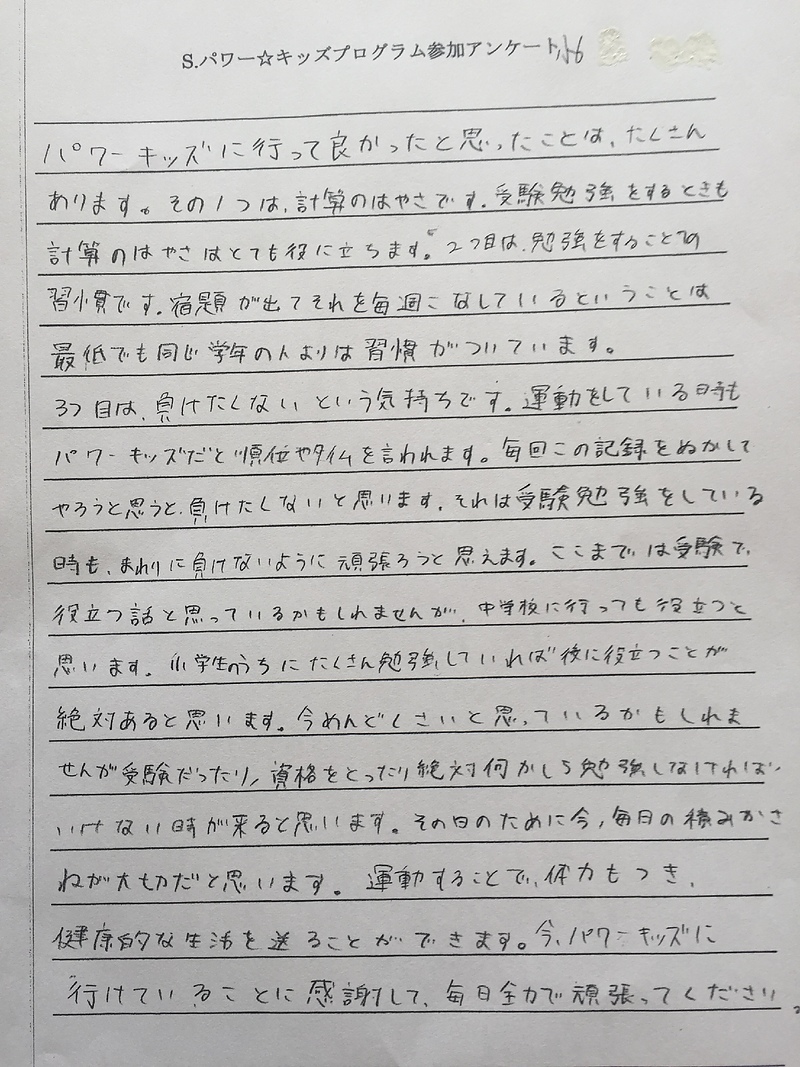 S.パワー☆キッズプログラム参加アンケート 小6
パワーキッズに行って良かったと思ったことは、たくさん
あります。その1つは、計算のはやさです。受験勉強をするときも
計算のはやさはとても役に立ちます。2つ目は、勉強をすることの
習慣です。宿題が出てそれを毎週こなしているということは
最低でも同じ学年の人よりは習慣がついています。
3つ目は、負けたくないという気持ちです。運動をしている時も
パワーキッズだと順位やタイムを言われます。毎回この記録をぬかして
やろうと思うと、負けたくないと思います。それは受験勉強をしている
時も、まわりに負けないように頑張ろうと思えます。ここまでは受験で、
役立つ話と思っているかもしれませんが、中学校に行っても役立つと
思います。小学生のうちにたくさん勉強していれば後に役立つことが
絶対あると思います。今めんどくさいと思っているかもしれま
せんが受験だったり、資格をとったり絶対何かしら勉強しなければ
いけない時が来ると思います。その日のために今、毎日の積みかさ
ねが大切だと思います。運動することで、体力もつき、
健康的な生活を送ることができます。今、パワーキッズに
行けていることに感謝して、毎日全力で頑張ってください。